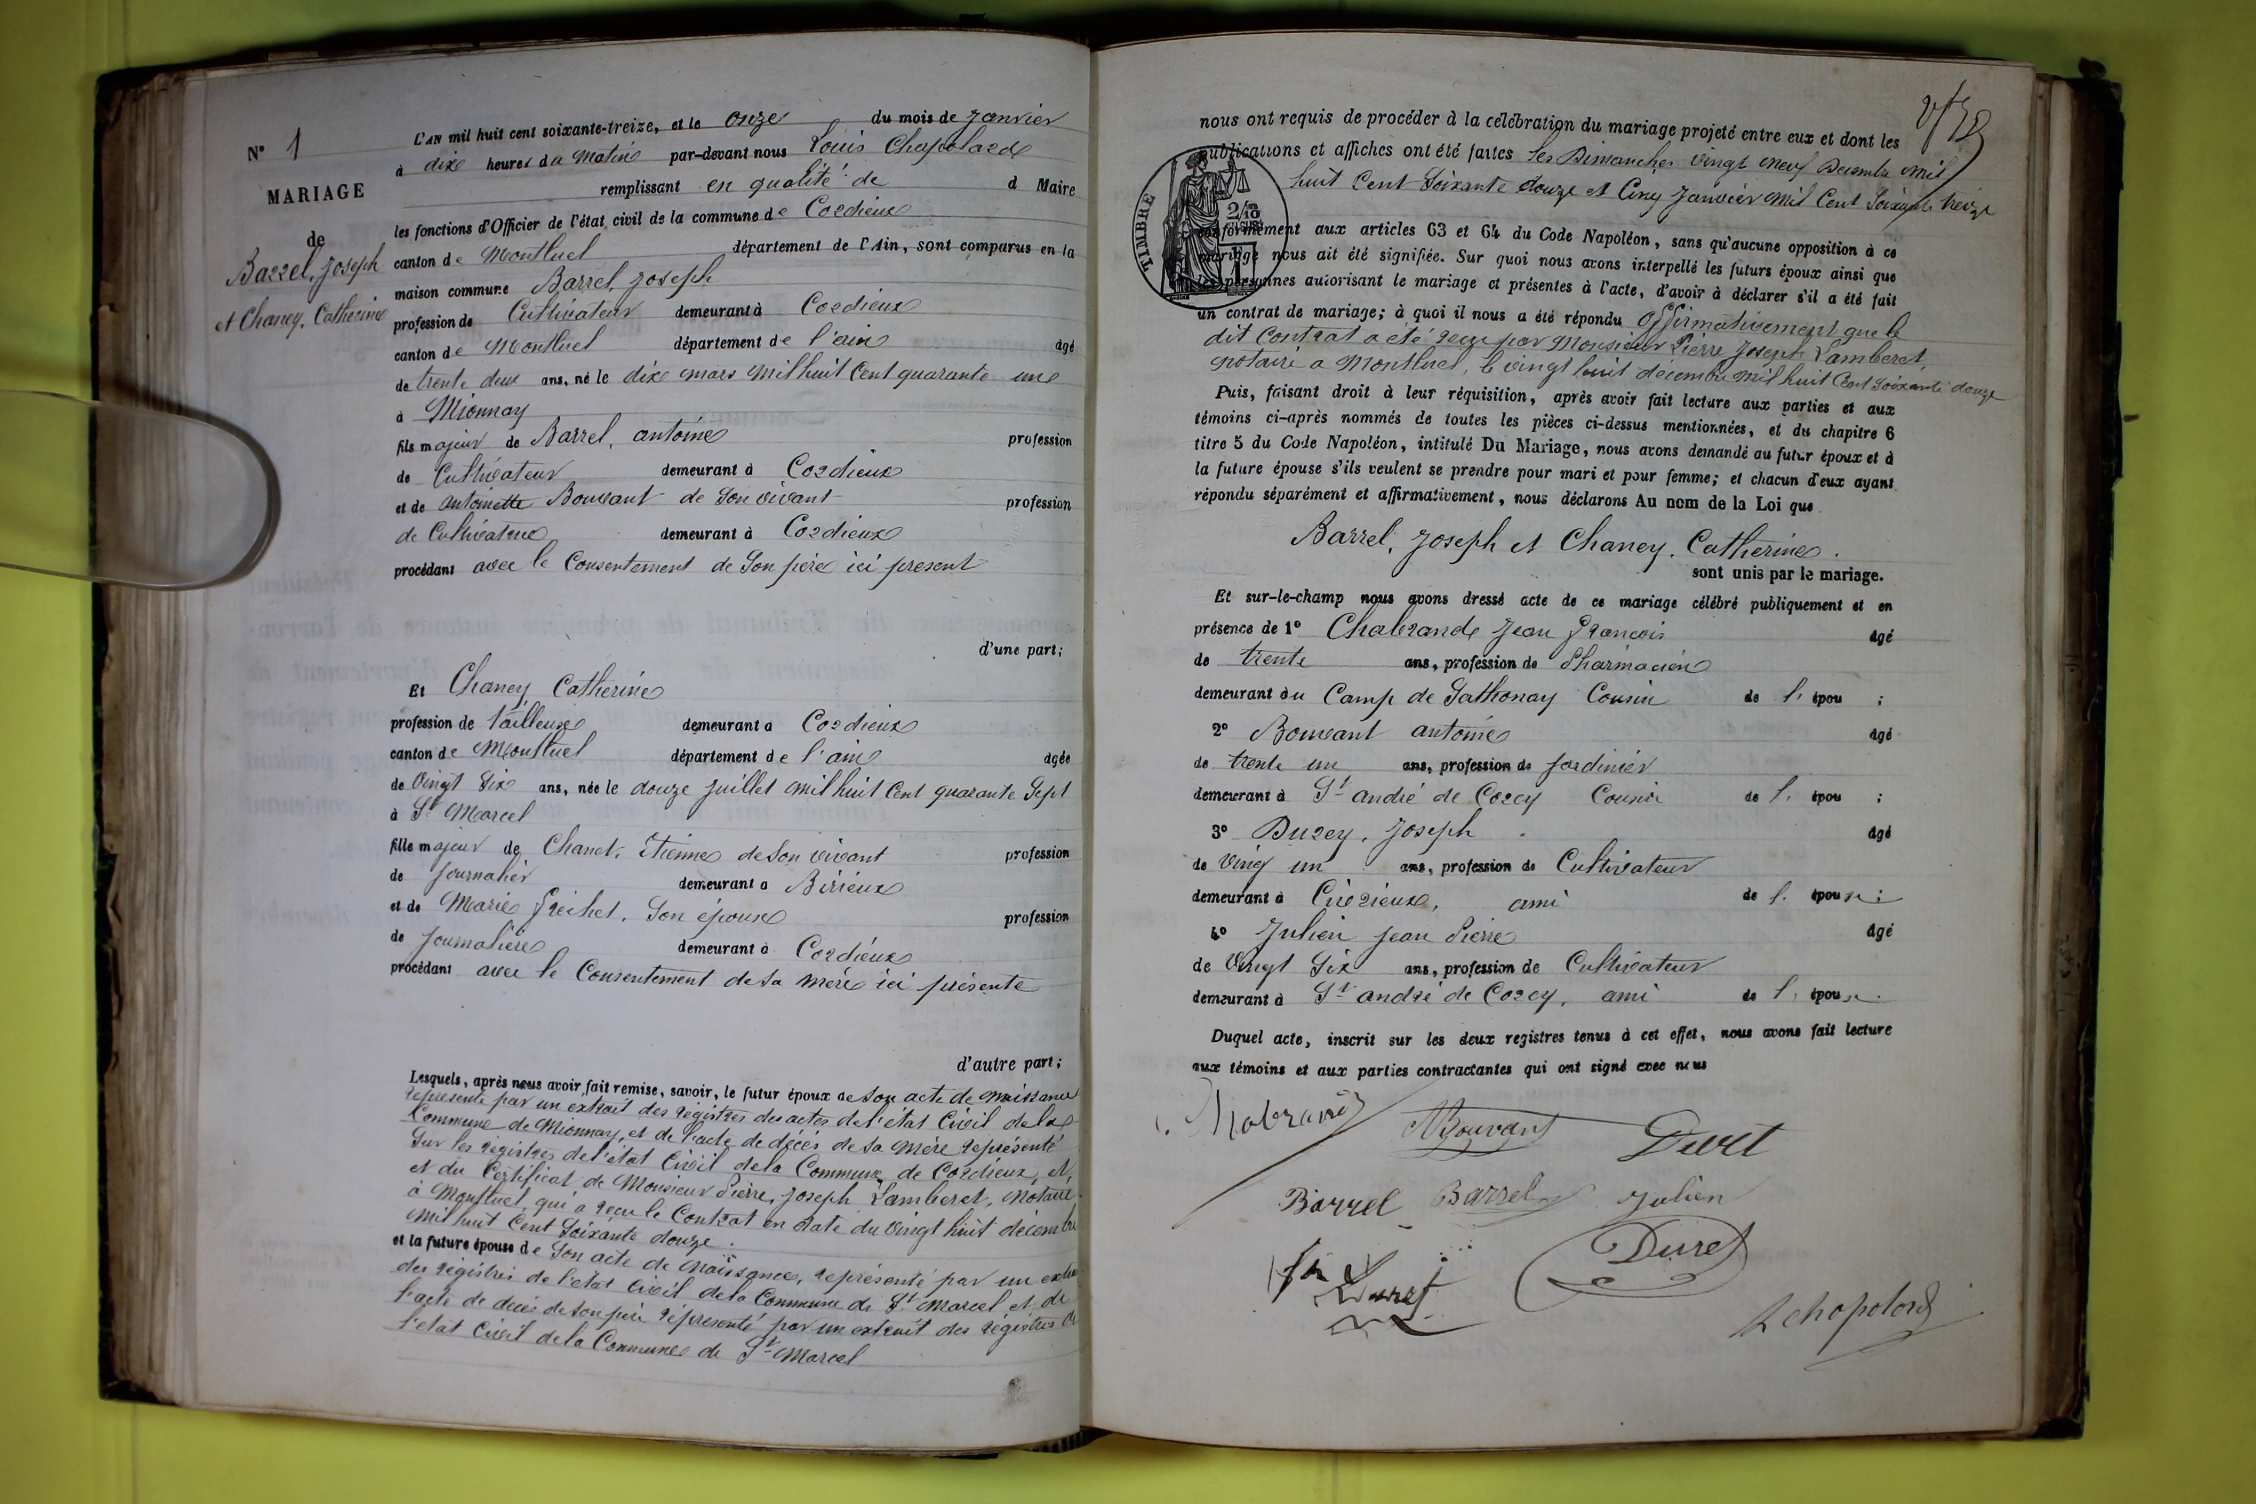 N° 1
MARIAGE
de
Barrel, Joseph
et Chaney, Catherine
L'AN mil huit cent soixante-treize, et le onze du mois de Janvier
à dix heures du Matin par-devant nous Louis Chapolard
remplissant en qualité de d Maire
les fonctions d'Officier de l'état civil de la commune de Cordieux
canton de Montluel département de l'Ain, sont comparus en la
maison commune Barrel, Joseph
profession de Cultivateur demeurant à Cordieux
canton de Montluel département de l'ain âgé
de trente deux ans, né le dix mars mil huit Cent quarante une
à Mionnay
fils majeur de Barrel, antoine profession
de Cultivateur demeurant à Cordieux
et de antoinette Bouvant de Son vivant profession
de Cultivatrice demeurant à Cordieux
procédant avec le Consentement de Son père ici present
d'une part;
Et Chaney Catherine
profession de tailleuse demeurant a Cordieux
canton de Montluel département de l'ain âgée
de Vingt Six ans, née le douze Juillet mil huit Cent quarante Sept
à St Marcel
fille majeur de Chanel, Etienne de Son vivant profession
de Journalier demeurant a Birieux
et de Marie Son épouse profession
de Journalière demeurant à Cordieux
procédant avec le Consentement de sa mère ici présente
d'autre part;
Lesquels, après nous avoir fait remise, savoir, le futur époux de Son acte de naissance
représenté par un extrait des registres des actes de l'état Civil de la
Commune de Mionnay, et de l'acte de décès de sa mère représenté
Sur les registres de l'état Civil de la Commune de Cordieux, et,
et du Certificat de Monsieur Pierre, Joseph Lamberet, notaire
à Montluel, qui a reçu le Contrat en date du Vingt huit décembre
mil huit Cent Soixante douze.
et la future épouse de Son acte de naissance, représenté par un extrait
des régistres de l'état Civil de la Commune de St Marcel et de
l'acte de décès de son père réprésenté par un extrait des régistres de
l'état Civil de la Commune de St Marcel
nous ont requis de procéder à la célébration du mariage projeté entre eux et dont les
publications et affiches ont été faites les Dimanches Vingt neuf Decembre mil
huit Cent Soixante douze et Cinq Janvier mil Cent Soixante treize
TIMBRE
2/10
conformément aux articles 63 et 64 du Code Napoléon, sans qu'aucune opposition à ce
mariage nous ait été signifiée. Sur quoi nous avons interpellé les futurs époux ainsi que
les personnes autorisant le mariage et présentes à l'acte, d'avoir à déclarer s'il a été fait
un contrat de mariage; à quoi il nous a été répondu affirmativement que le
dit Contrat a été reçu par Monsieur Pierre Joseph Lamberet,
notaire a Montluel, le vingt huit decembre mil huit Cent Soixante douze
Puis, faisant droit à leur réquisition, après avoir fait lecture aux parties et aux
témoins ci-après nommés de toutes les pièces ci-dessus mentionnées, et du chapitre 6
titre 5 du Code Napoléon, intitulé Du Mariage, nous avons demandé au futur époux et à
la future épouse s'ils veulent se prendre pour mari et pour femme; et chacun d'eux ayant
répondu séparément et affirmativement, nous déclarons Au nom de la Loi que
Barrel, Joseph et Chaney, Catherine.
sont unis par le mariage.
Et sur-le-champ nous avons dressé acte de ce mariage célébré publiquement et en
présence de 1° Chabrand Jean François âgé
de trente ans, profession de Pharmacien
demeurant au Camp de Sathonay Cousin de l' épou ;
2° Bouvant antoine âgé
de trente un ans, profession de Jardinier
demeurant à St andré de Corcy Cousin de l' épou ;
3° Durey, Joseph âgé
de Vingt un ans, profession de Cultivateur
demeurant à Civrieux, ami de l' épouse;
4° Julien Jean Pierre âgé
de Vingt Six ans, profession de Cultivateur
demeurant à St andré de Corcy, ami de l' épouse.
Duquel acte, inscrit sur les deux registres tenus à cet effet, nous avons fait lecture
aux témoins et aux parties contractantes qui ont signé avec nous
Chabrand
ABouvant
Duret
Barrel
Barrel
Julien
Duret
Duret
Lchapolard